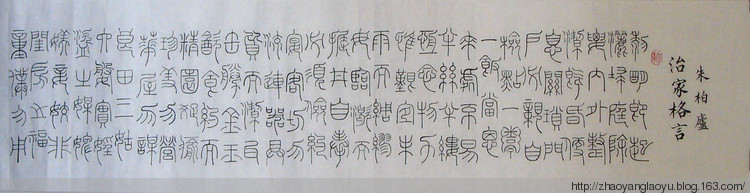 朱柏廬
治家格言
黎明即起
灑掃庭除
要內外整
潔既昏便
息關鎖門
戶必親自
檢點一粥
一飯當思
來處不易
半絲半縷
恆念物力
惟艱宜未
雨而綢繆
毋臨渴而
掘井自奉
必須儉約
宴客切勿
流連器具
質而潔瓦
缶勝金玉
飲食約而
精園蔬愈
珍饈勿營
華屋勿謀
良田三姑
六婆實淫
盜之媒婢
美妾嬌非
閨房之福
童僕勿用
http://zhaoyanglaoyu.blog.163.com/